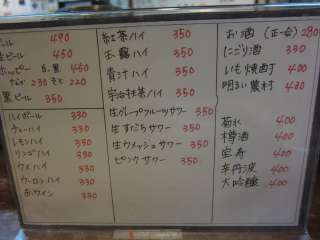 ビール 490
生ビール 450
ホッピー 白・黒 450
なか 230 そと 220
黒ビール 350
ハイボール 330
チューハイ 330
レモンハイ 330
リンゴハイ 330
ウメハイ 330
ウーロンハイ 330
赤ワイン 330
紅茶ハイ 350
玉露ハイ 350
青汁ハイ 350
宇治抹茶ハイ 350
生グレープフルーツサワー 350
生すだちサワー 350
生ウメッシュサワー 350
ピンクサワー 350
お酒(正一合) 280
にごり酒 350
いも焼酎 400
明るい農村 430
菊水 400
樽酒 400
宝寿 400
辛丹波 400
大吟醸 400